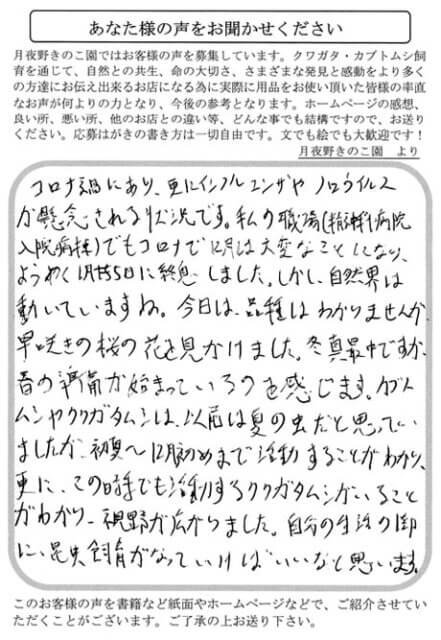 あなた様の声をお聞かせください
月夜野きのこ園ではお客様の声を募集しています。クワガタ・カブトムシ飼
育を通じて、自然との共生、命の大切さ、さまざまな発見と感動をより多く
の方達にお伝え出来るお店になる為に実際に用品をお使い頂いた皆様の率直
なお声が何よりの力となり、今後の参考となります。ホームページの感想、
良い所、悪い所、他のお店との違い等、どんな事でも結構ですので、お送り
ください。応募はがきの書き方は一切自由です。文でも絵でも大歓迎です！
月夜野きのこ園　より
コロナ禍にあり、更にインフルエンザや ノロウイルス
が懸念される状況です。私の職場(精神科病院
入院病棟)でもコロナで12月は大変なことになり、
ようやく1月5日に終息しました。しかし、自然界は
動いていますね。今日は、品種はわかりませんが、
早咲きの桜の花を見かけました。冬真最中ですが、
春の準備が始まっているのを感じます。カブト
ムシやクワガタムシは、以前は夏の虫だと思ってい
ましたが、初夏〜12月初めまで活動することがわかり、
更に、この時季でも活動するクワガタムシがいること
がわかり、視野が広がりました。自分の生活の
に、昆虫飼育がなっていけばいいなと思います。
このお客様の声を書籍など紙面やホームページなどで、ご紹介させてい
ただくことがございます。ご了承の上お送り下さい。